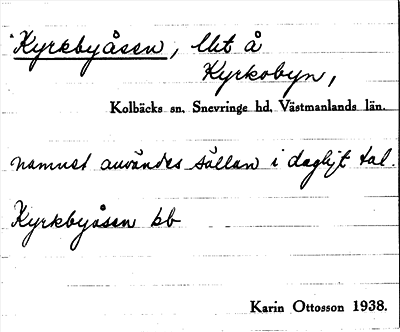 Kyrkbyåsen, lht å
Kyrkobyn,
Kolbäcks sn, Snevringe hd, Västmanlands län.
namnet användes sällan i dagligt tal.
Kyrkbyåsen kb
Karin Ottosson 1938.